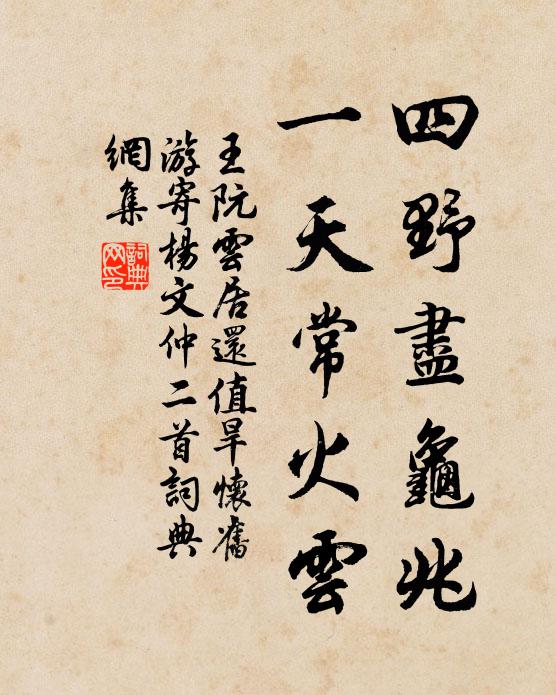 四野盡龜兆
一天常火雲
王阮雲居還值旱懷舊
游寄楊文仲二首詞典
網集
詞典
网印